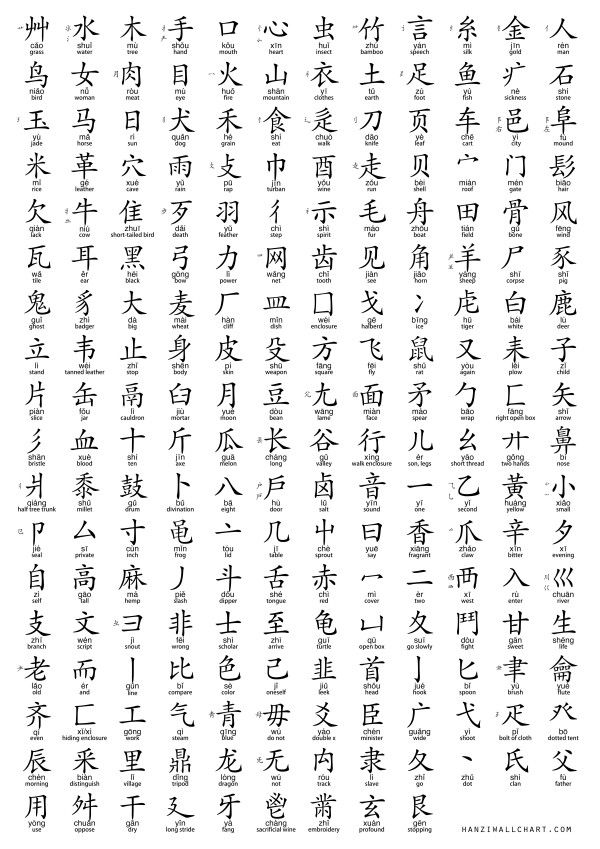 艸 水 木 手 口 心 虫 竹 言 糸 金 人
cǎo shuǐ mù shǒu kǒu xīn huǐ zhú yán mì jīn rén
grass water tree hand mouth heart insect bamboo speech silk gold man
鸟 女 肉 目 火 山 衣 土 足 鱼 疒 石
niǎo nǚ ròu mù huǒ shān yī tǔ zú yú nè shí
bird woman meat eye fire mountain clothes earth foot fish sickness stone
玉 马 日 犬 禾 食 辵 刀 页 车 邑 阜
yù mǎ rì quǎn hé shí chuò dāo yè chē yì fù
jade horse sun dog grain eat walk knife leaf cart city mound
米 革 穴 雨 攴 巾 酉 走 贝 宀 门 髟
mǐ gé xué yǔ pū jīn yǒu zǒu bèi mián mén biāo
rice leather cave rain rap turban wine run shell roof gate hair
欠 牛 隹 歹 羽 彳 示 毛 舟 田 骨 风
qiàn niú zhuī dǎi yǔ chì shì máo zhōu tián gǔ fēng
lack cow short-tailed bird death feather step spirit fur boat field bone wind
瓦 耳 黑 弓 力 网 齿 见 角 羊 尸 豕
wǎ ěr hēi gōng lì wǎng chǐ jiàn jiǎo yáng shī shǐ
tile ear black bow power net tooth see horn sheep corpse pig
鬼 豸 大 麦 厂 皿 囗 戈 冫 虍 白 鹿
guǐ zhì dà mài hǎn mǐn wéi gē bīng hǔ bái lù
ghost badger big wheat cliff dish enclosure halberd ice tiger white deer
立 韦 止 身 皮 殳 方 飞 鼠 又 耒 子
lì wéi zhǐ shēn pí shū fāng fēi shǔ yòu lěi zǐ
stand tanned leather stop body skin weapon square fly rat again plow child
片 缶 鬲 臼 月 豆 尢 面 矛 勹 匚 矢
piàn fǒu lì jiù yuè dòu wāng miàn máo bāo fāng shǐ
slice jar cauldron mortar moon bean lame face spear wrap right open box arrow
彡 血 十 斤 瓜 长 谷 行 儿 幺 廾 鼻
shān xuè shí jīn guā cháng gǔ xíng ér yāo gǒng bí
bristle blood ten axe melon long valley walk enclosure son, legs short thread two hands nose
爿 黍 鼓 卜 八 戶 卤 音 一 乙 黄 小
qiáng shǔ gǔ bǔ bā hù lǔ yīn yī yǐ huáng xiǎo
half tree trunk millet drum divination eight door salt sound one second yellow small
卩 厶 寸 黾 亠 几 屮 曰 香 爪 辛 夕
jié sī cùn mǐn tóu jī chè yuē xiāng zhǎo xīn xī
seal private inch frog lid table sprout say fragrant claw bitter evening
自 高 麻 丿 斗 舌 赤 冖 二 西 入 巛
zì gāo má piě dǒu shé chì mì èr xī rù chuān
self tall hemp slash dipper tongue red cover two west enter river
支 文 彐 非 士 至 龟 凵 夊 鬥 甘 生
zhī wén jì fēi shì zhì guī qǔ suī dòu gān shēng
branch script snout wrong scholar arrive turtle open box go slowly fight sweet life
老 而 丨 比 色 己 韭 首 亅 匕 聿 龠
lǎo ér gǔn bǐ sè jǐ jiǔ shǒu jué bǐ yù yuè
old and line compare color oneself leek head hook spoon brush flute
齐 匸 工 气 青 毋 爻 臣 广 弋 疋 癶
qí xǐ/xì gōng qì qīng wú yáo chén guǎng yì pǐ bō
even hiding enclosure work steam blue do not double x minister wide shoot bolt of cloth dotted tent
辰 釆 里 鼎 龙 无 禸 隶 夂 丶 氏 父
chén biàn lǐ dǐng lóng wú róu lì zhǐ diǎn shì fù
morning distinguish village tripod dragon not track slave go dot clan father
用 舛 干 廴 牙 鬯 黹 玄 艮
yòng chuǎn gān yǐn yá chàng zhǐ xuán gěn
use oppose dry long stride fang sacrificial wine embroidery profound stopping
HANZIWALLCHART.COM